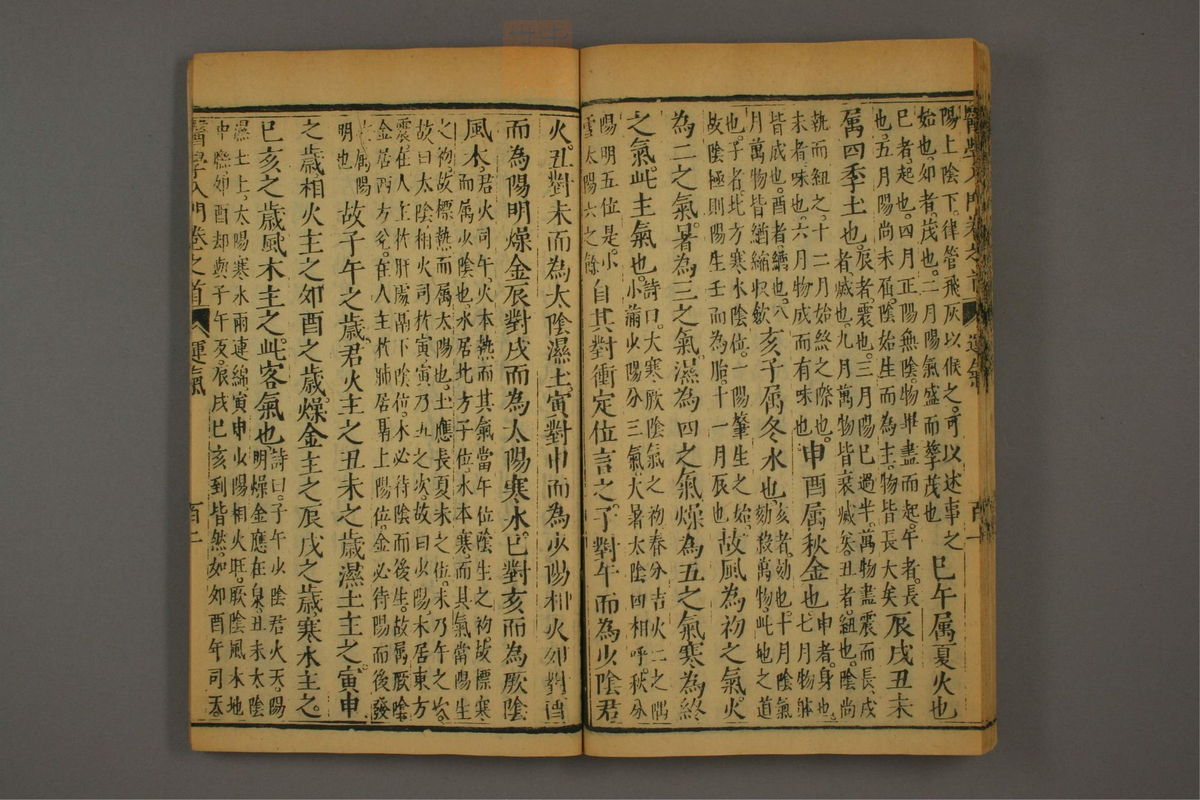 醫學入門卷之首 運氣 百一
陽上陰下律管飛灰以候之可以述事之
始也卯者茂也二月陽氣盛而孳茂也
巳午属夏火也
巳者起也四月正陽無陰物畢盡而起午者長
也五月陽尚未屈陰始生而為主物皆長大矣
辰戌丑未
属四季土也
辰者震也三月陽巳過半萬物盡震而長戌
者㓕也九月萬物皆衰㓕矣丑者紐也陰尚
執而紐之十二月始終之際也
未者味也六月物成而有味也
申酉属秋金也
申者身也七月物躰
皆成也酉者緧也八
月萬物皆緧縮收歛
亥子属冬水也
亥者劾也十月陰氣
劾殺萬物此地之道
也子者北方寒水陰位一陽肇生之始
故陰極則陽生壬而為胎十一月辰也
故風為初之氣火
為二之氣暑為三之氣濕為四之氣燥為五之氣寒為終
之氣此主氣也
詩曰大寒厥陰氣之初春分君火二之隅
小滿少陽分三氣大暑太陰四相呼秋分
陽明五位是小
雪太陽六之餘
自其對衝定位言之子對午而為少陰君
火丑對未而為太陰濕土寅對申而為少陽相火卯對酉
而為陽明燥金辰對戌而為太陽寒水巳對亥而為厥陰
風木
君火司午火本熱而其氣當午位陰生之初故標寒
而属少陰也水居北方子位水本寒而其氣當陽生
之初故標熱而属太陽也土應長夏未之位未乃午之次
故曰太陰相火司於寅寅乃丑之次故曰少陽木居東方
震在人主於肝属鬲下陰位木必待陰而後生故属厥陰
金居西方兌在人主於肺居鬲上陽位金必待陽而後發
故属陽
明也
故子午之歲君火主之丑未之歲濕土主之寅申
之歲相火主之卯酉之歲燥金主之辰戌之歲寒水主之
巳亥之歲風木主之此客氣也
詩曰子午少陰君火天陽
明燥金應在泉丑未太陰
濕土上太陽寒水雨連綿寅申少陽相火旺厥陰風木地
中聯卯酉却與子午反辰戌巳亥到皆然如卯酉年司天
醫學入門卷之首 運氣 百二